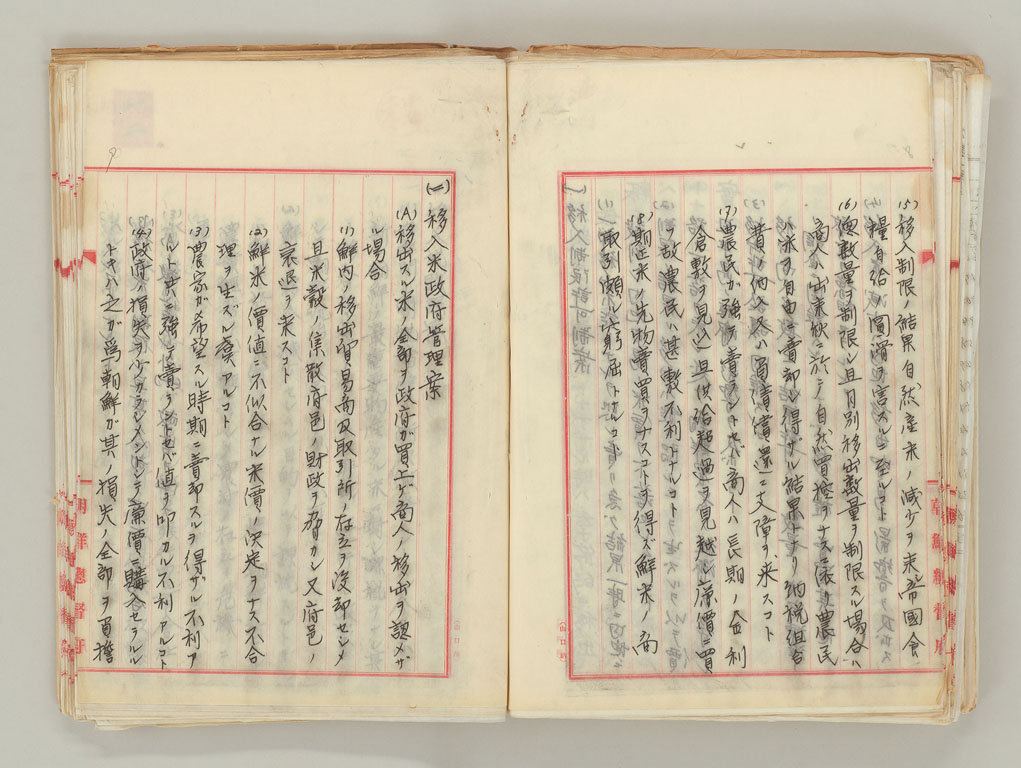 (5) 移入制限ノ結果自然産米ノ減少ヲ来シ帝國食
糧自給ノ圓滑ヲ害スルニ至ルコト
(6) 數量ヲ制限シ且月別移出數量ヲ制限スル場合ハ
商人ハ出来秋ニ於テ自然買控ヲナスニ依リ農民
ハ米ヲ自由ニ賣却シ得ザル結果トナリ納税組合
費ノ納入又ハ負債償還ニ支障ヲ来スコト
(7) 農民ガ強テ賣ラントセバ商人ハ長期ノ金利
倉敷ヲ見込ミ且供給超過ヲ見越シ廉價ニ買
フ故農民ハ甚敷不利トナルコト
(8) 期近米ノ先物賣買ヲナスコトヲ得ズ鮮米ノ商
取引頗ル窮屈トナルコト
(二) 移入米政府管理案
(A) 移出スル米ノ全部ヲ政府ガ買上ゲ商人ノ移出ヲ認メザ
ル場合
(1) 鮮内ノ移出貿易商及取引所ノ存立ヲ沒却セシメ
且米穀ノ集散府邑ノ財政ヲ脅カシ又府邑ノ
衰退ヲ来スコト
(2) 鮮米ノ價値ニ不似合ナル米價ノ決定ヲナス不合
理ヲ生ズル虞アルコト
(3) 農家ガ希望スル時期ニ賣却スルヲ得ザル不利ア
ルト共ニ強テ賣ラントセバ値ヲ叩カル不利アルコト
(4) 政府ノ損失ヲ少カラシメントシテ廉價ニ購入セラルル
トキハ之ガ爲朝鮮ガ其ノ損失ノ全部ヲ負擔
朝鮮總督府